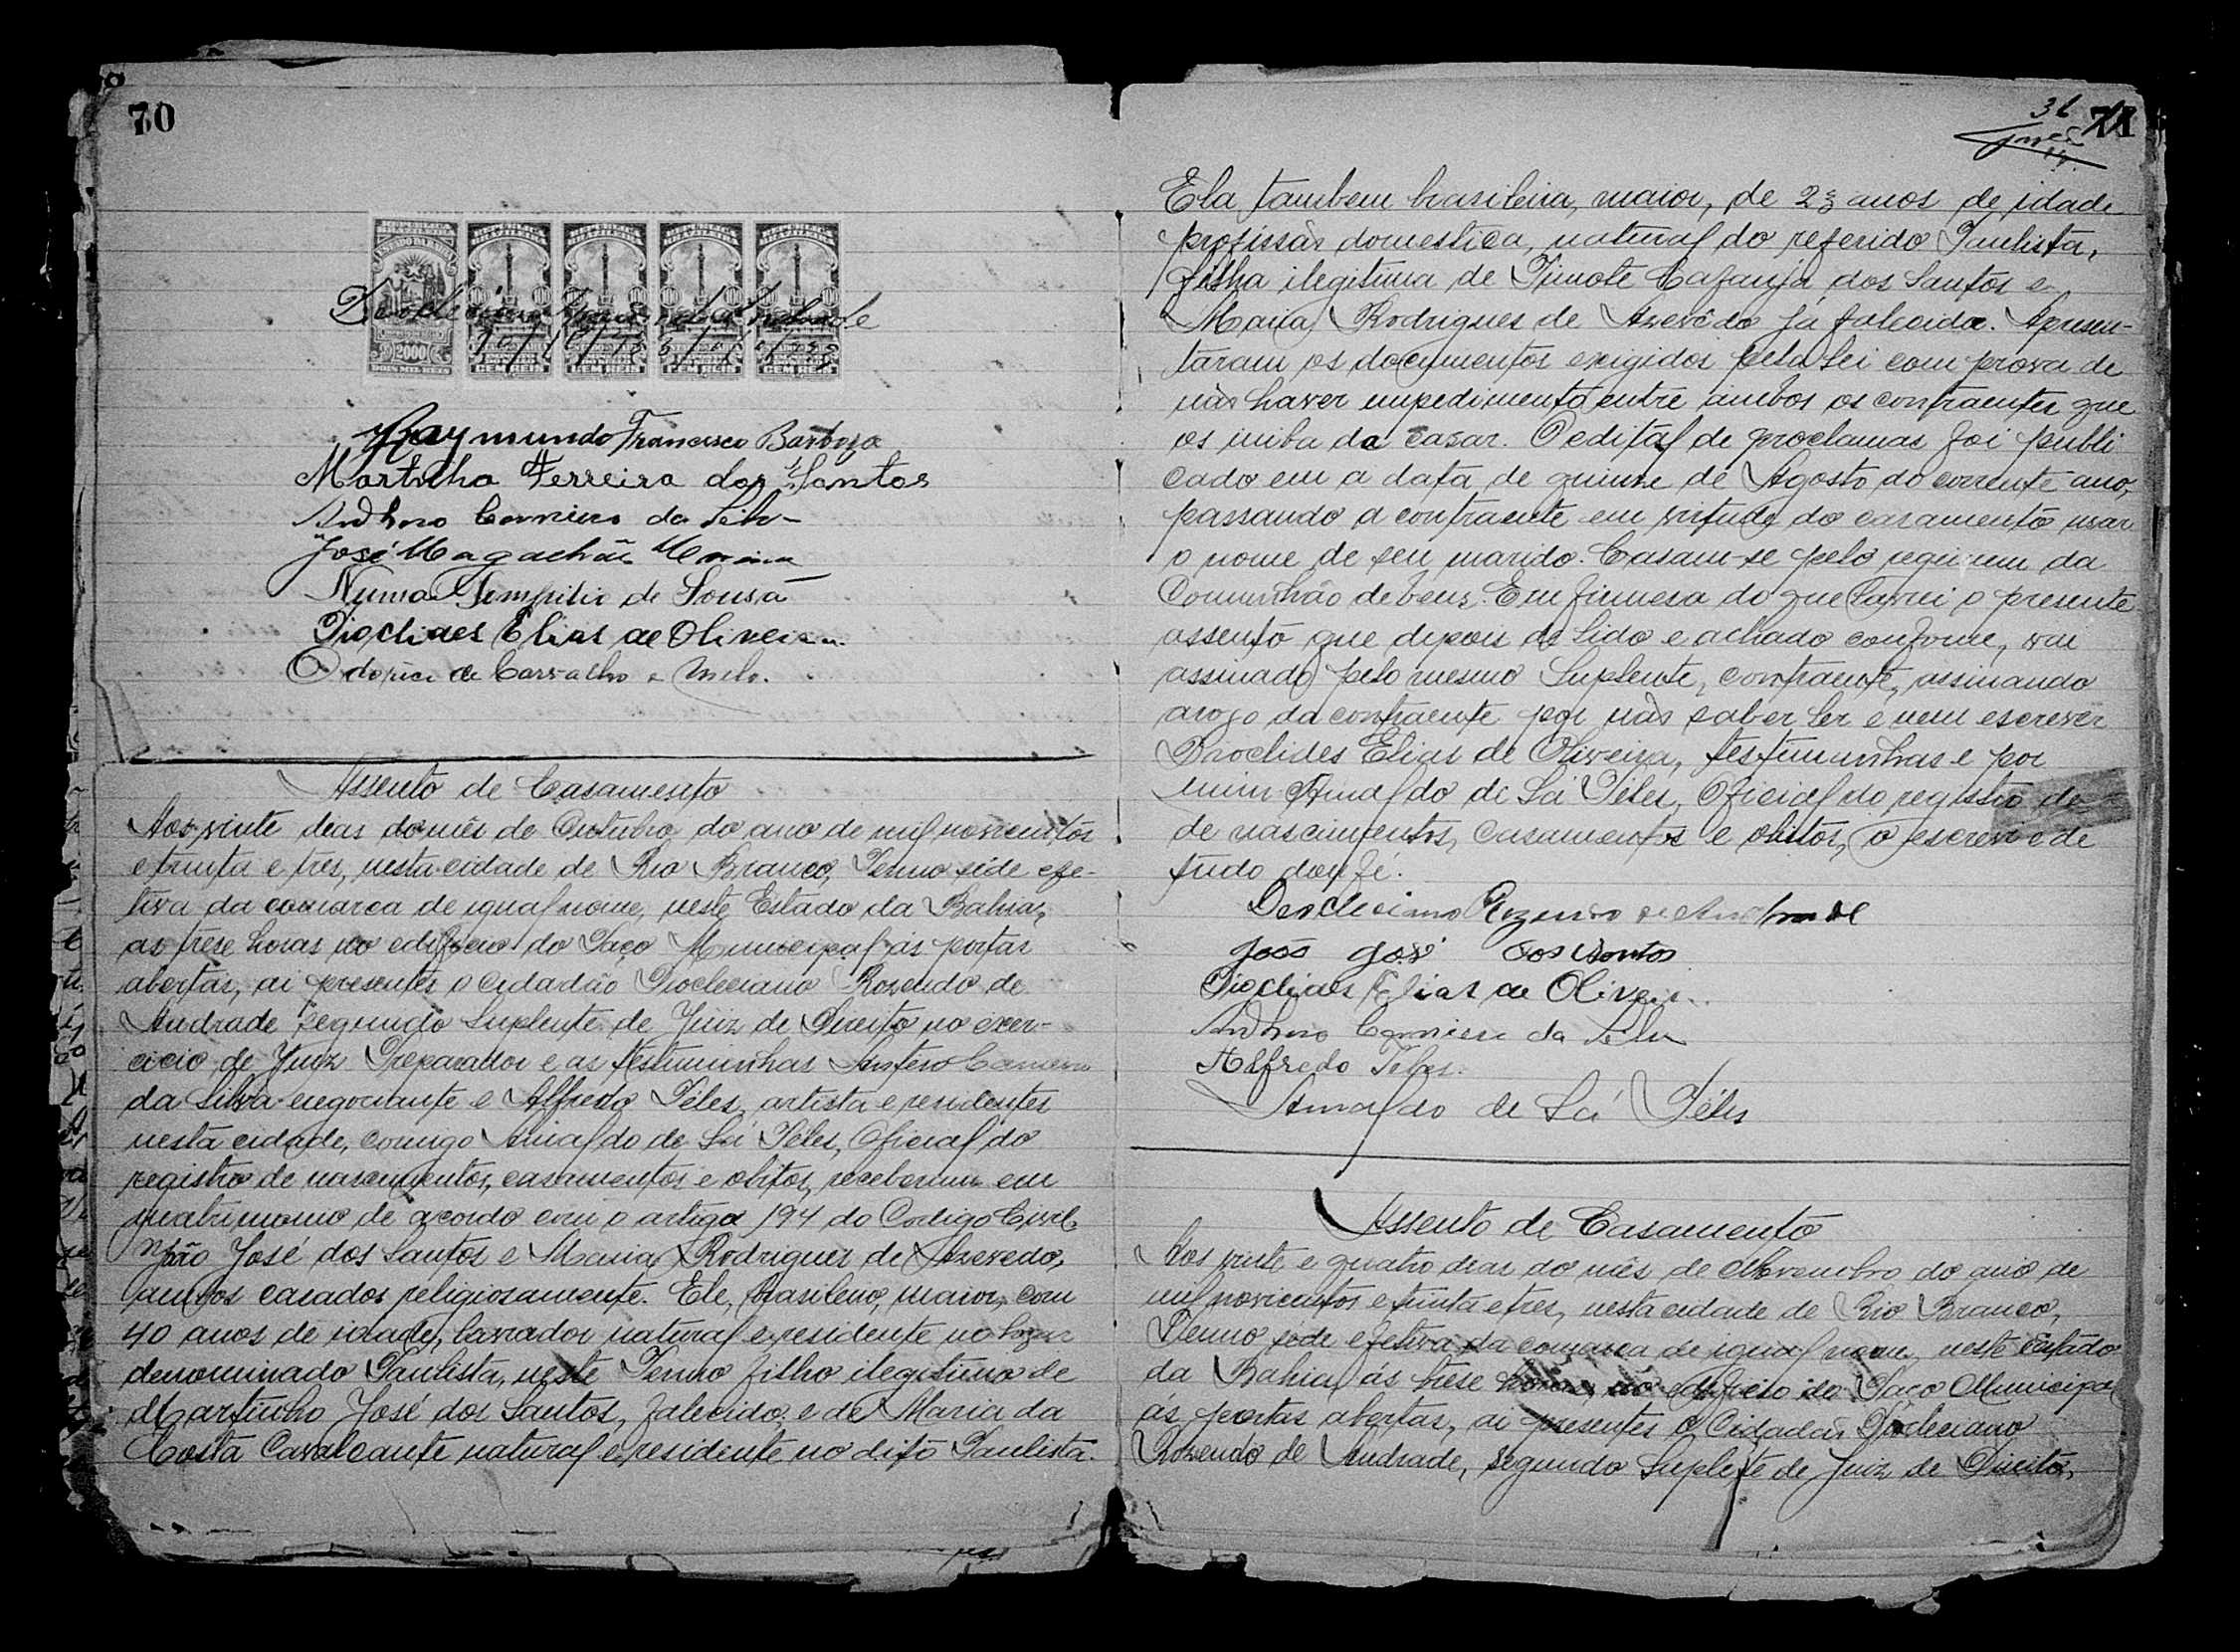 70
ESTADO DA BAHIA
2000
DOIS MIL REIS
CEM REIS
CEM REIS
CEM REIS
CEM REIS
Raymundo Francisco Barboza
Martinha Ferreira dos Santos
José Magachãis
Numa Pompilio de Sousa
Dioclides Elias de Oliveira
de Carvalho e Melo.
Assento de Casamento
Aos vinte dias do mês de Outubro do ano de mil novecentos
e trinta e três, nesta cidade de Rio Branco, Termo séde efe-
tiva da comarca de igual nome, neste Estado da Bahia,
as trese horas no edificio do Paço Municipal ás portas
abertas, ai presentes o cidadão Diocleciano Rosendo de
Andrade segundo Suplente de Juiz de Direito no exer-
cicio de Juiz Preparador e as testimunhas Antero Carneiro
da Silva negociante e Alfredo Téles, artista e residentes
nesta cidade, comigo Arnaldo de Sá Téles, Oficial do
registro de nascimentos, casamentos e obitos, receberam em
matrimonio de acordo com o artigo 194 do Codigo Civil,
João José dos Santos e Maria Rodrigues de Azevedo,
ambos casados religiosamente. Ele, brasileiro, maior, com
40 anos de idade, lavrador natural e residente no lugar
denominado Paulista, neste Termo filho ilegitimo de
Martinho José dos Santos, falecido e de Maria da
Costa Cavalcante natural e residente no dito Paulista.
71
Ela tambem brasileira, maior, de 23 anos de idade
profissão domestica, natural do referido Paulista,
filha ilegitima de Timote Cafanja dos Santos e
Maria Rodrigues de Azevêdo já falecida. Apresen-
taram os documentos exigidos pela Lei com prova de
não haver impedimento entre ambos os contraentes que
os iniba da casar. O edital de proclamas foi publi
cado em a data de quinze de Agosto do corrente ano,
passando a contraente em virtude do casamento usar
o nome de seu marido. Casam-se pelo regimem da
Comunhão de bens. Em firmesa do que lavrei o presente
assento que depois de lido e achado conforme, vai
assinado pelo mesmo Suplente, contraente, assinando
arogo da contraente por não saber ler e nem escrever
Dioclides Elias de Oliveira, testimunhas e por
mim Arnaldo de Sá Téles, Oficial do registro de
de nascimentos, casamentos e obitos, o escrevi e de
tudo dou fé.
Deocleciano Rozendo de Andrade
João José dos Santos
Dioclides Elias de Oliveira
Carneiro da Silva
Alfredo Teles.
Arnaldo de Sá Téles
Assento de Casamento
Aos vinte e quatro dias do mês de Novembro do ano de
mil novecentos e trinta e tres, nesta cidade de Rio Branco,
Termo sede efetiva da comarca de igual nome, neste Estado
da Bahia, ás trese horas, no edificio do Paço Municipal
as portas abertas, ai presentes o Cidadão Diocleciano
Rosendo de Andrade, segundo Suplente de Juiz de Direito,